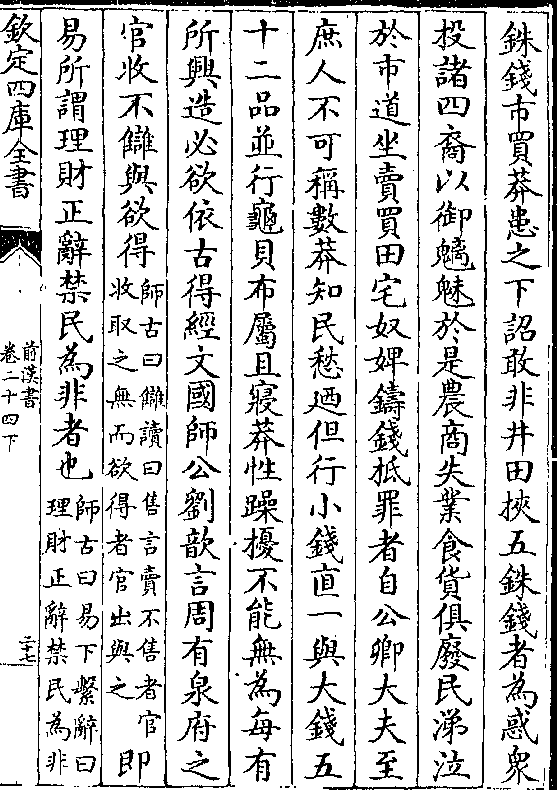 銖錢市買莽患之下詔敢非井田挾五銖錢者為惑衆
投諸四裔以御魑魅於是農商失業食貨俱廢民涕泣
於市道坐賣買田宅奴婢鑄錢抵罪者自公卿大夫至
庶人不可稱數莽知民愁廼但行小錢直一與大錢五
十二品並行龜貝布屬且寢莽性躁擾不能無為每有
所興造必欲依古得經文國師公劉歆言周有泉府之
官收不讎與欲得
師古曰讎讀曰售言賣不售者官
收取之無而欲得者官出與之
即
易所謂理財正辭禁民為非者也
師古曰易下繫辭曰
理財正辭禁民為非
欽定四庫全書
前漢書
卷二十四下
二十七